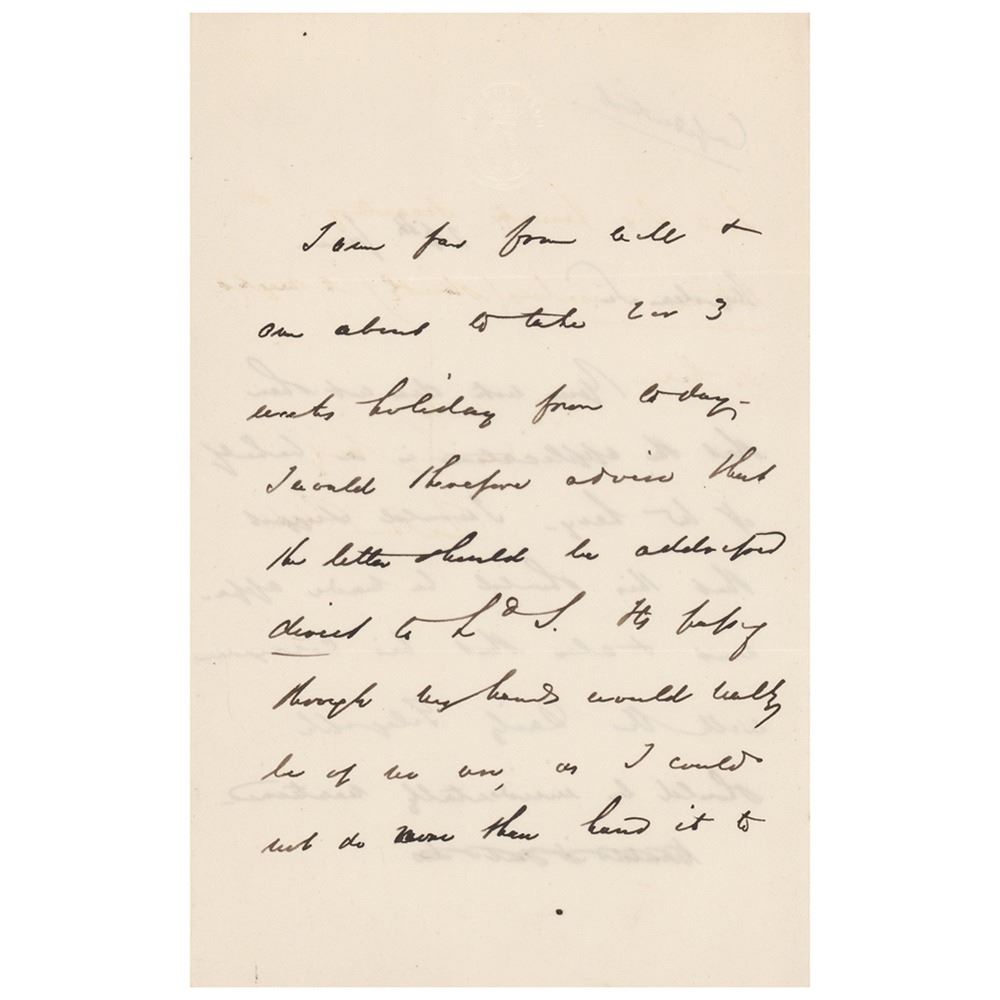 I am far from well &
am about to take 2 or 3
weeks holiday from today –
I would therefore advise that
the letter should be addressed
direct to Ld S. Its passing
through my hands would really
be of no use, as I could
not do more than hand it to